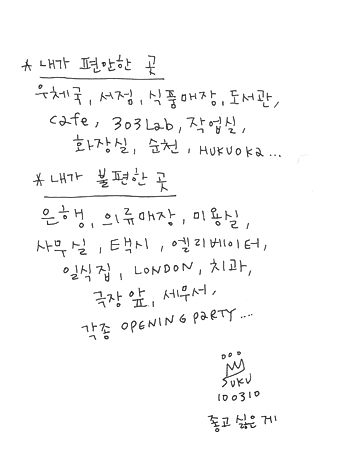 * 내가 편안한 곳
우체국, 서점, 식품매장, 도서관,
cafe, 303Lab, 작업실,
화장실, 순천, HUKUOKA...
* 내가 불편한 곳
은행, 의류매장, 미용실,
사무실, E택시, 엘리베이터,
일식집, LONDON, 치과,
극장 앞, 세무서,
각종 OPENING PARTY....
SUKU
100310
좋고 싫은 게